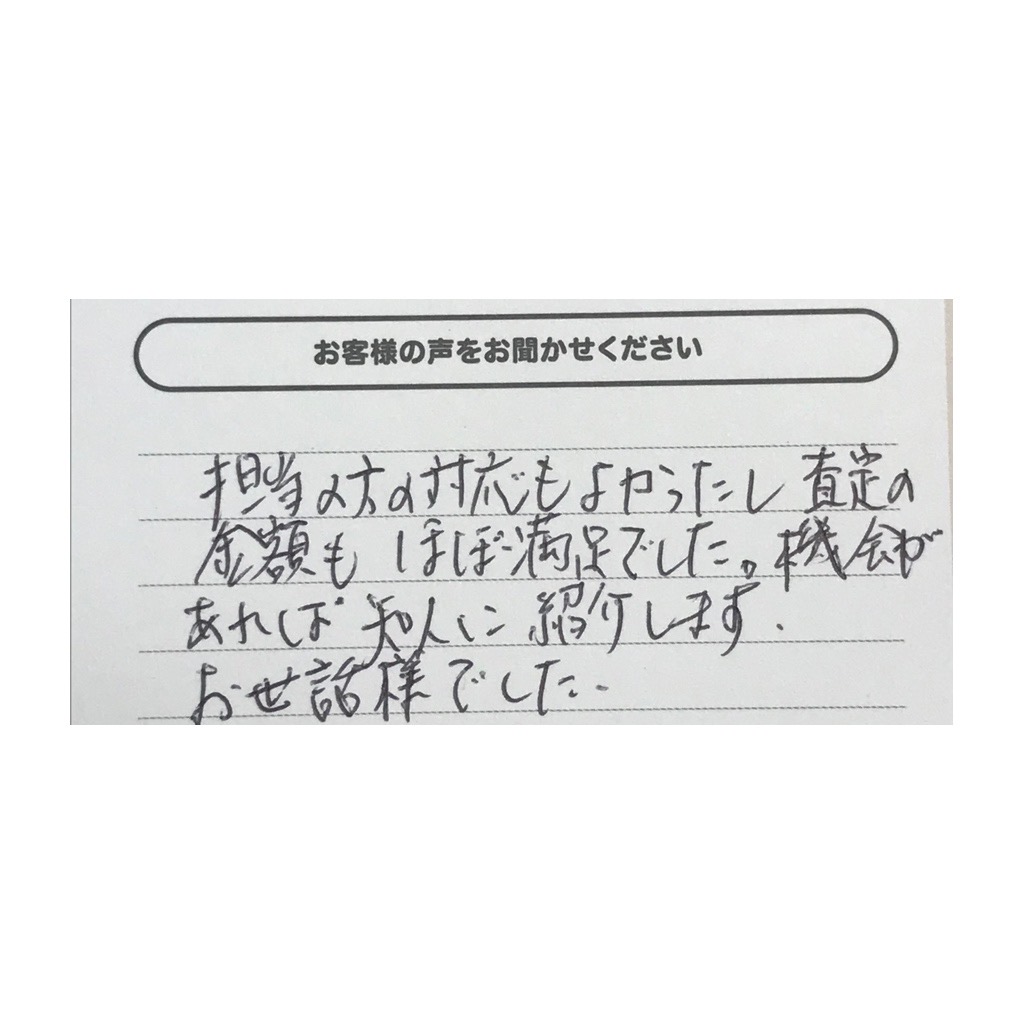 お客様の声をお聞かせください
担当の方の対応もよかったし 査定の
金額も ほぼ満足でした。機会が
あれば 知人に 紹介します.
お世話様でした.